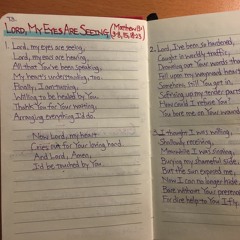 LORD, MY EYES ARE SEEING
1. Lord, my eyes are seeing,
Lord, my ears are hearing,
All that You've been speaking,
My heart's understanding, too.
Finally, I am turning,
Willing to be healed by You.
Thank You for Your waiting,
Arranging everything I'd do.
Now Lord, my heart
Cries out for Your loving hand.
And Lord, Amen,
I'd be trusted by You.
2. Lord, I've been so hardened,
Caught in worldly traffic,
Downtrod by words that
Fell upon my wayward heart
Somehow, still You got in,
Lifting up my tender part
How could I refuse You?
You bore me on Your wounds
3. I thought I was willing,
Shadowly receiving,
Meanwhile I was sinning,
Burying my shameful side.
But the Sun exposed me,
Now I can no longer hide
Bare without Your pretense
I'd dive help to You I fly